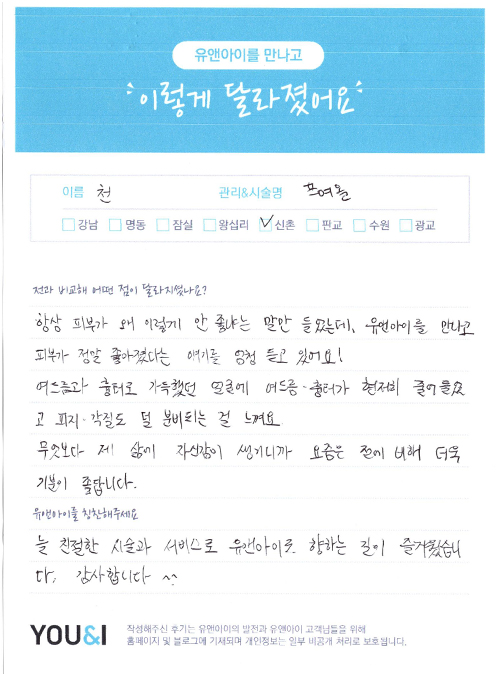 유앤아이를 만나고
이렇게 달라졌어요
이름 천 관리&시술명 프여올
강남 명동 잠실 왕십리 신촌 판교 수원 광교
전과 비교해 어떤 점이 달라지셨나요?
항상 피부가 왜 이렇게 안 좋냐는 말만 들었는데, 유앤아이를 만나고
피부가 정말 좋아졌다는 얘기를 엄청 듣고 있어요!
여드름과 흉터로 가득했던 얼굴에 여드름·흉터가 현저히 줄어들었
고 피지·각질도 덜 분비되는 걸 느껴요.
무엇보다 제 삶에 자신감이 생기니까 요즘은 전에 비해 더욱
기분이 좋답니다.
유앤아이를 칭찬해주세요
늘 친절한 시술과 서비스로 유앤아이로 향하는 길이 즐거웠습니
다. 감사합니다 ^^
YOU&I
작성해주신 후기는 유앤아이의 발전과 유앤아이 고객님들을 위해
홈페이지 및 블로그에 기재되며 개인정보는 일부 비공개 처리로 보호됩니다.